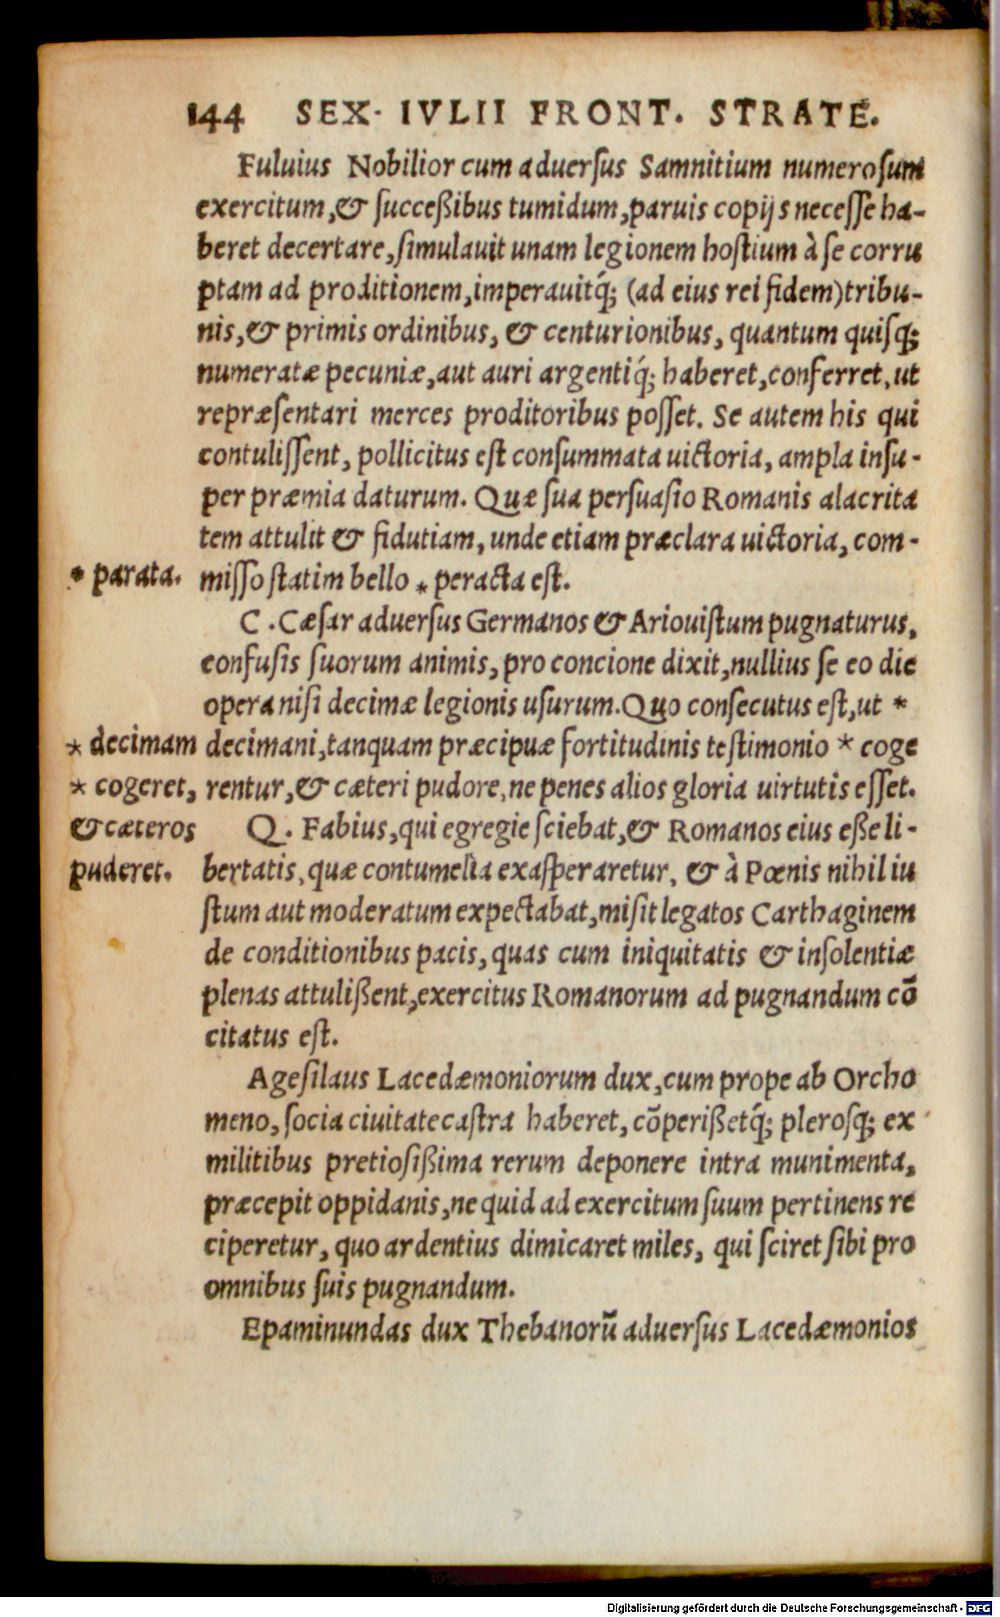 144 SEX. IVLII FRONT. STRATE.
Fuluius Nobilior cum aduersus Samnitium numerosum
exercitum, & succeßibus tumidum, paruis copijs necesse ha-
beret decertare, simulauit unam legionem hostium à se corru
ptam ad proditionem, imperauitq́; (ad eius rei fidem) tribu-
nis, & primis ordinibus, & centurionibus, quantum quisq;
numeratæ pecuniæ, aut auri argentiq́; haberet, conferret, ut
repræsentari merces proditoribus posset. Se autem his qui
contulissent, pollicitus est consummata uictoria, ampla insu-
per præmia daturum. Quæ sua persuasio Romanis alacrita
tem attulit & fidutiam, unde etiam præclara uictoria, com-
* parata. misso statim bello * peracta est.
C. Cæsar aduersus Germanos & Ariouistum pugnaturus,
confusis suorum animis, pro concione dixit, nullius se eo die
opera nisi decimæ legionis usurum. Quo consecutus est, ut *
* decimam decimani, tanquam præcipuæ fortitudinis testimonio * coge
* cogeret, rentur, & cæteri pudore, ne penes alios gloria uirtutis esset.
& cæteros Q. Fabius, qui egregie sciebat, & Romanos eius eße li-
puderet. bertatis, quæ contumelia exasperaretur, & à Pœnis nihil iu
stum aut moderatum expectabat, misit legatos Carthaginem
de conditionibus pacis, quas cum iniquitatis & insolentiæ
plenas attulißent, exercitus Romanorum ad pugnandum cō
citatus est.
Agesilaus Lacedæmoniorum dux, cum prope ab Orcho
meno, socia ciuitate castra haberet, cōperißetq́; plerosq; ex
militibus pretiosißima rerum deponere intra munimenta,
præcepit oppidanis, ne quid ad exercitum suum pertinens re
ciperetur, quo ardentius dimicaret miles, qui sciret sibi pro
omnibus suis pugnandum.
Epaminundas dux Thebanorū aduersus Lacedæmonios
Digitalisierung gefördert durch die Deutsche Forschungsgemeinschaft - DFG